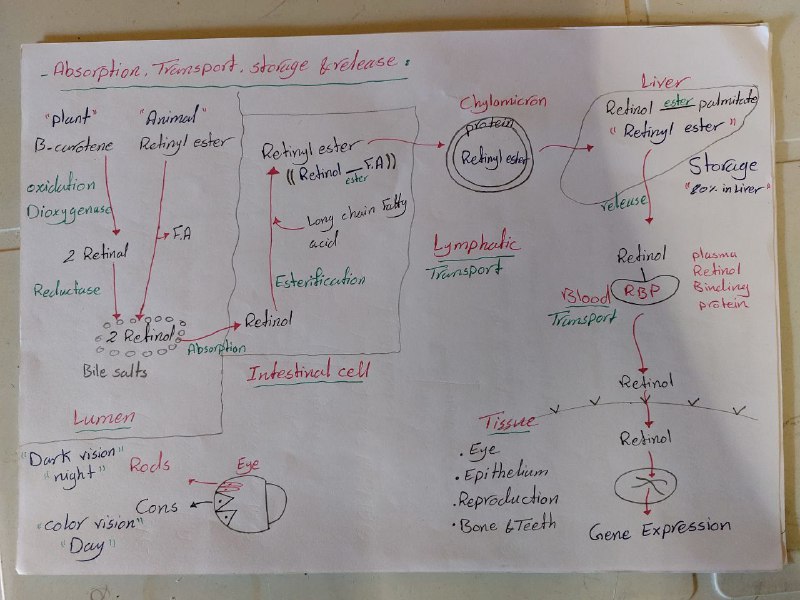 - Absorption, Transport, storage & release :
"plant"
B-carotene
oxidation
Dioxygenase
2 Retinal
Reductase
"Animal"
Retinyl ester
F.A
2 Retinol
Bile salts
Absorption
Lumen
Retinyl ester
(( Retinol — F.A ))
ester
Long chain Fatty
acid
Esterification
Retinol
Intestinal cell
Chylomicron
protein
Retinyl ester
Lymphatic
Transport
Liver
Retinol ester palmitate
"Retinyl ester"
Storage
"80% in Liver"
release
Retinol
RBP
plasma
Retinol
Binding
protein
Blood
Transport
Retinol
Tissue
. Eye
. Epithelium
. Reproduction
. Bone & Teeth
Retinol
Gene Expression
"Dark vision"
"night"
Rods
Eye
Cons
"color vision"
"Day"